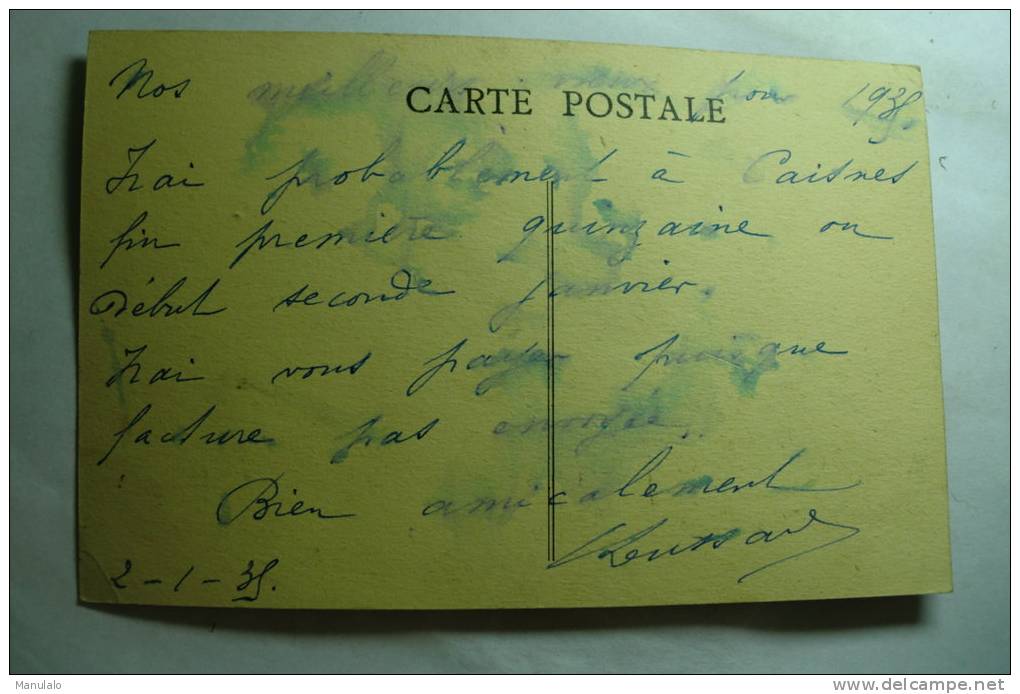 Nos meilleurs vœux pour 1935.
CARTE POSTALE
Irai probablement à Caisnes
fin première quinzaine ou
Début seconde janvier.
Irai vous payer puisque
facture pas envoyée.
Bien amicalement
2-1-35.
Manulalo
delcampe.net